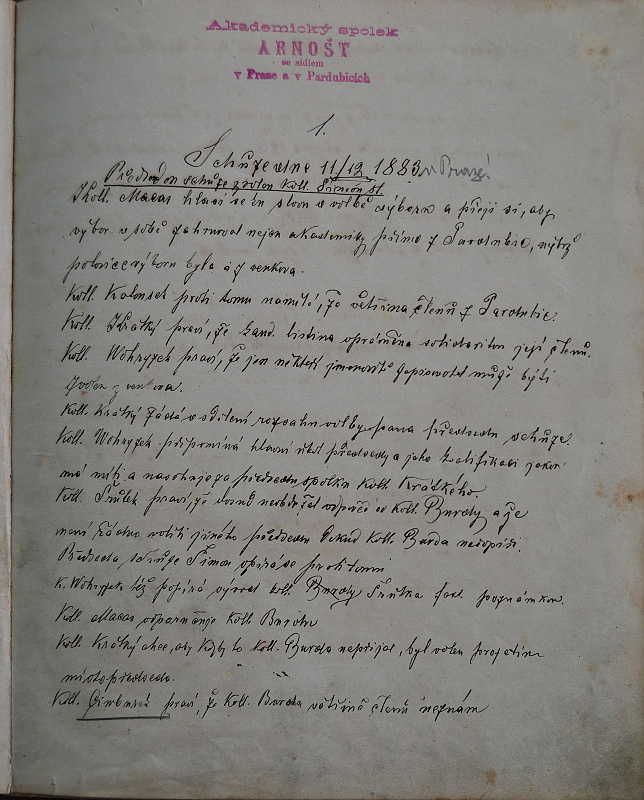 Akademický spolek
ARNOŠT
se sídlem
v Praze a v Pardubicích
1.
Schůze dne 11/12 1883 v Praze!
Předsedou schůze zvolen koll. Šimon st.
Koll. Macas hlásí se ku slovu o volbě výboru a přeje si, aby
výbor v sobě zahrnoval nejen akademiky přímo z Pardubic, nýbrž
polovice výboru byla i z venkova.
Koll. proti tomu namítá, že většina členů z Pardubic.
Koll. Krátký praví, že listina solidaritu její členů.
Koll. Wohryzek praví, že jen někteří může býti
zvolen z venkova.
Koll. Krátký žádá o sdělení rozsahu volby pana předsedu schůze.
Koll. Wohryzek připomíná hlavní úkol předsedy a jeho kvalifikaci jakou
má míti a navrhuje za předsedu spolku koll. Krátkého.
Koll. praví, že dosud neobdržel odpověď od koll. Burdy a že
není žádno voliti jiného předsedu dokud koll. Burda nedopíší.
Předseda schůze Šimon opírá se proti tomu
K. Wohryzek též popírá vývod koll. Burdy
Koll. Macas odporučuje koll. Burdu
Koll. Krátký chce, aby kdyby to koll. Burda nepřijal, byl volen prozatím
místopředseda.
Koll. praví, že koll. Burda většině členů neznám